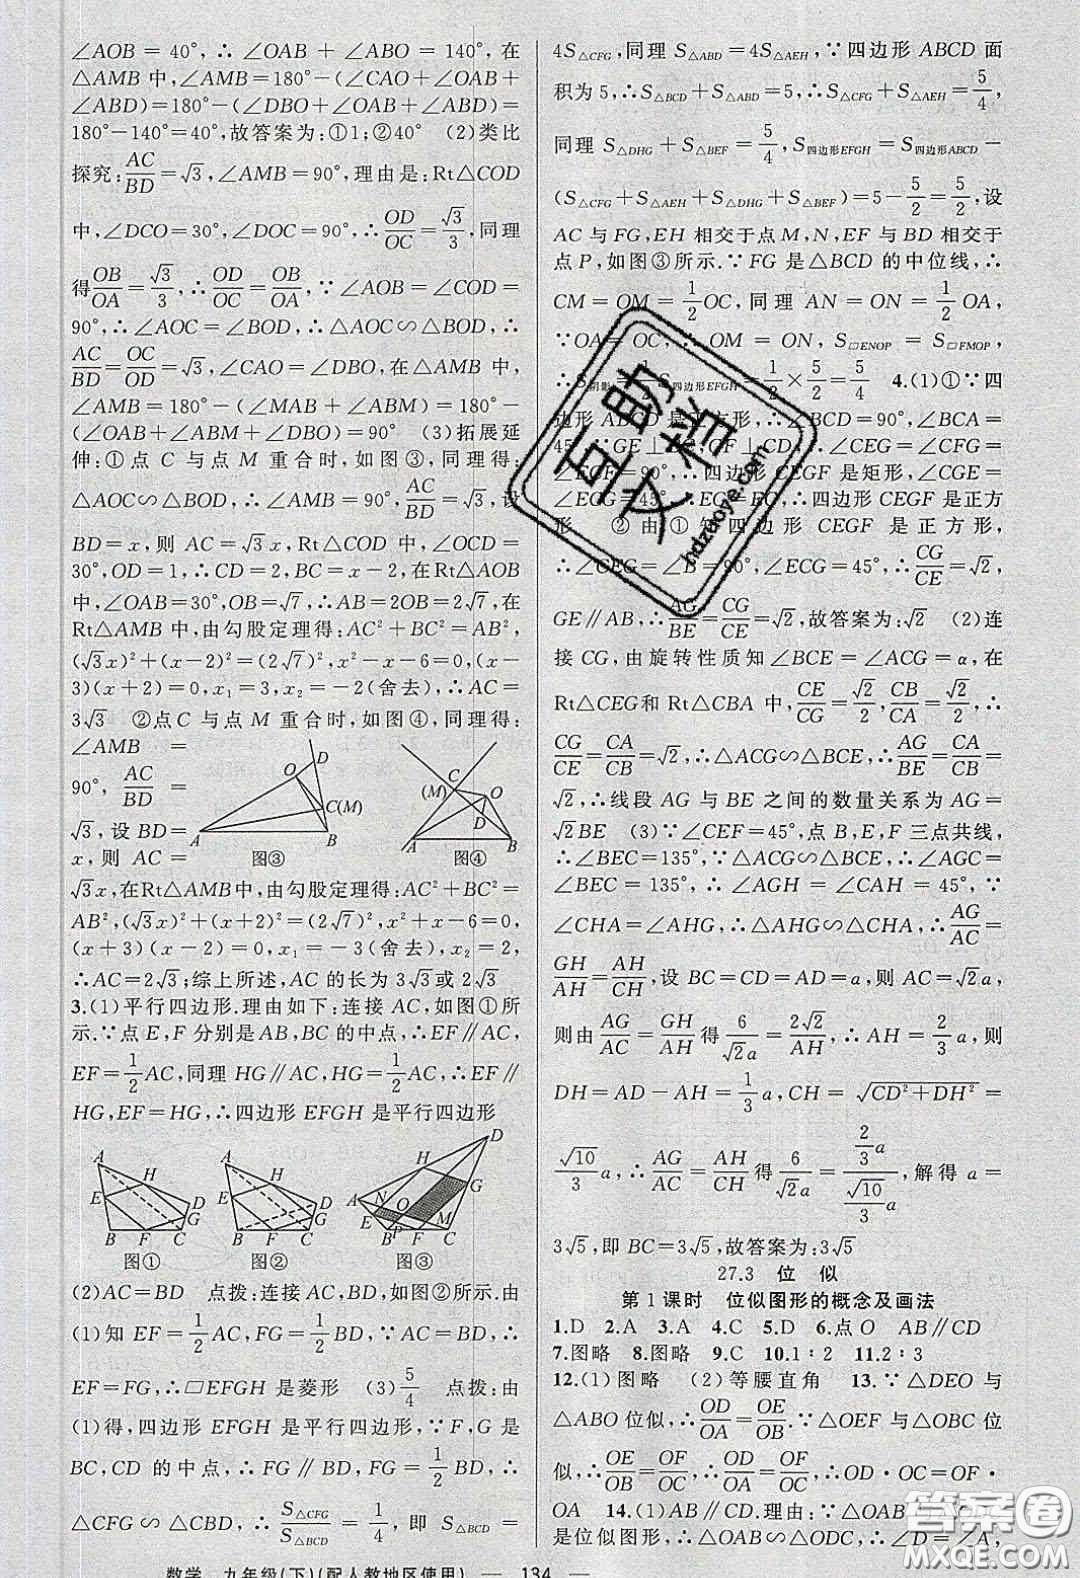 ∠AOB = 40°, ∴ ∠OAB + ∠ABO = 140°, 在
△AMB 中, ∠AMB=180°-(∠CAO+∠OAB+
∠ABD)=180°-(∠DBO+∠OAB+∠ABD)=
180°-140°=40°,故答案为:①1;②40° (2)类比
探究:AC/BD=√3,∠AMB=90°,理由是:Rt△COD
中,∠DCO=30°,∠DOC=90°,∴OD/OC=√3/3,同理
得OB/OA=√3/3,∴OD/OC=OB/OA,∵∠AOB=∠COD=
90°,∴∠AOC=∠BOD,∴△AOC∽△BOD,∴
AC/BD=OC/OD=√3,∠CAO=∠DBO,在△AMB 中,
∠AMB = 180° - (∠MAB + ∠ABM) = 180° -
(∠OAB+∠ABM+∠DBO)=90° (3)拓展延
伸:①点 C 与点 M 重合时,如图③,同理得:
△AOC∽△BOD,∴∠AMB=90°,AC/BD=√3,设
BD=x,则 AC=√3x,Rt△COD 中,∠OCD=
30°,OD=1,∴CD=2,BC=x-2,在Rt△AOB
中,∠OAB=30°,OB=√7,∴AB=2OB=2√7,在
Rt△AMB 中,由勾股定理得:AC²+BC²=AB²,
(√3x)²+(x-2)²=(2√7)²,x²-x-6=0,(x-
3)(x+2)=0,x₁=3,x₂=-2(舍去),∴AC=
3√3 ②点C 与点 M 重合时,如图④,同理得:
∠AMB =
90°, AC/BD =
√3,设 BD=
x,则 AC =
O D C(M) A B 图③
C (M) O D A B 图④
√3x,在Rt△AMB中,由勾股定理得:AC²+BC²=
AB²,(√3x)²+(x+2)²=(2√7)²,x²+x-6=0,
(x+3)(x-2)=0,x₁=-3(舍去),x₂=2,
∴AC=2√3;综上所述,AC 的长为 3√3或 2√3
3.(1)平行四边形.理由如下:连接 AC,如图①所
示.∵点 E,F 分别是 AB,BC 的中点,∴EF∥AC,
EF=1/2AC,同理 HG∥AC,HG=1/2AC,∴EF∥
HG,EF=HG,∴四边形 EFGH 是平行四边形
A H E D G B F C 图①
A H E D G B F C 图②
D H G A N O E M B P F C 图③
(2)AC=BD 点拨:连接 AC,BD,如图②所示.由
(1)知 EF=1/2AC,FG=1/2BD,∵AC=BD,∴
EF=FG,∴▱EFGH 是菱形 (3)5/4 点拨:由
(1)得,四边形 EFGH 是平行四边形,∵F,G 是
BC,CD 的中点,∴FG∥BD,FG=1/2BD,∴
△CFG∽△CBD,∴S△CFG/S△BCD=1/4,即 S△BCD=
数学 九年级(下)(配人教地区使用) — 134 —
4S△CFG,同理 S△ABD=4S△AEH,∵四边形 ABCD 面
积为 5,∴S△BCD+S△ABD=5,∴S△CFG+S△AEH=5/4,
同理 S△DHG+S△BEF=5/4,S四边形EFGH=S四边形ABCD-
(S△CFG+S△AEH+S△DHG+S△BEF)=5-5/2=5/2,设
AC 与 FG,EH 相交于点 M,N,EF 与 BD 相交于
点 P,如图③所示.∵FG 是△BCD 的中位线,∴
CM=OM=1/2OC,同理 AN=ON=1/2OA,
∵OA=OC,∴OM=ON,S▱ENOP=S▱FMOP,
∴S阴影=1/2S四边形EFGH=1/2×5/2=5/4 4.(1)①∵四
边形 ABCD 是正方形,∴∠BCD=90°,∠BCA=
45°,∵GE⊥BC,GF⊥CD,∴∠CEG=∠CFG=
∠ECF=90°,∴四边形 CEGF 是矩形,∠CGE=
∠ECG=45°,∴EG=EC,∴四边形 CEGF 是正方
形 ②由①知四边形 CEGF 是正方形,
∴∠CEG=∠B=90°,∠ECG=45°,∴CG/CE=√2,
GE∥AB,∴AG/BE=CG/CE=√2,故答案为:√2 (2)连
接 CG,由旋转性质知∠BCE=∠ACG=α,在
Rt△CEG和 Rt△CBA 中,CE/CG=√2/2,CB/CA=√2/2,∴
CG/CE=CA/CB=√2,∴△ACG∽△BCE,∴AG/BE=CA/CB=
√2,∴线段 AG 与 BE 之间的数量关系为 AG=
√2BE (3)∵∠CEF=45°,点 B,E,F 三点共线,
∴∠BEC=135°,∵△ACG∽△BCE,∴∠AGC=
∠BEC=135°,∴∠AGH=∠CAH=45°,∵
∠CHA=∠AHG,∴△AHG∽△CHA,∴AG/AC=
GH/AH=AH/CH,设 BC=CD=AD=a,则 AC=√2a,
则由AG/AC=GH/AH得6/√2a=2√2/AH,∴AH=2/3a,则
DH=AD-AH=1/3a,CH=√CD²+DH²=
√10/3a,∴AG/AC=AH/CH得6/√2a=2/3a/√10/3a,解得 a=
3√5,即 BC=3√5,故答案为:3√5
27.3 位 似
第 1 课时 位似图形的概念及画法
1.D 2.A 3.A 4.C 5.D 6.点 O AB∥CD
7.图略 8.图略 9.C 10.1∶2 11.2∶3
12.(1)图略 (2)等腰直角 13.∵△DEO 与
△ABO位似,∴OD/OA=OE/OB.∵△OEF与△OBC位
似,∴OE/OB=OF/OC,∴OD/OA=OF/OC,∴OD·OC=OF·
OA 14.(1)AB∥CD.理由:∵△OAB
是位似图形,∴△OAB∽△ODC,∴∠D=∠A,
互助文档
hdzuoye.com
答案圈
MXQE.COM